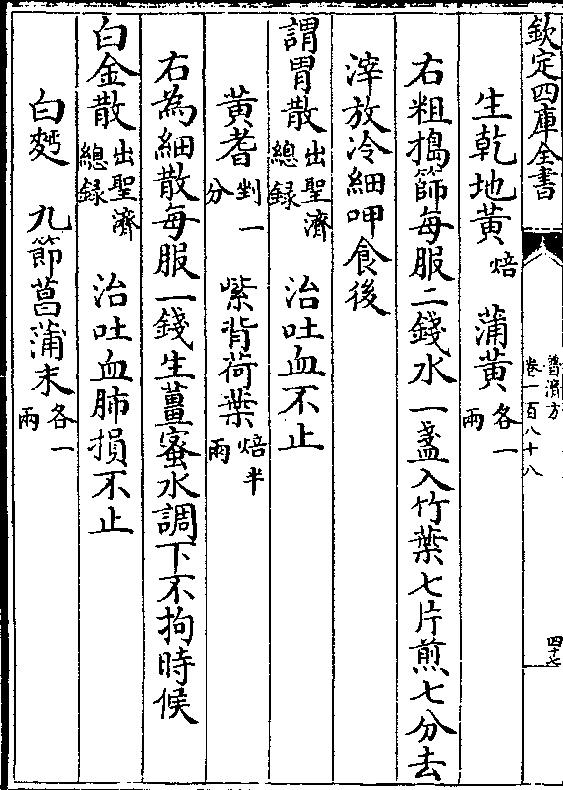 欽定四庫全書
普濟方
卷一百八十八
四十七
生乾地黃焙 蒲黃各一兩
右粗搗篩每服二錢水一盞入竹葉七片煎七分去
滓放冷細呷食後
謂胃散出聖濟總録 治吐血不止
黃耆剉一分 紫背荷葉焙半兩
右為細散每服一錢生薑蜜水調下不拘時候
白金散出聖濟總録 治吐血肺損不止
白麪 九節菖蒲末各一兩